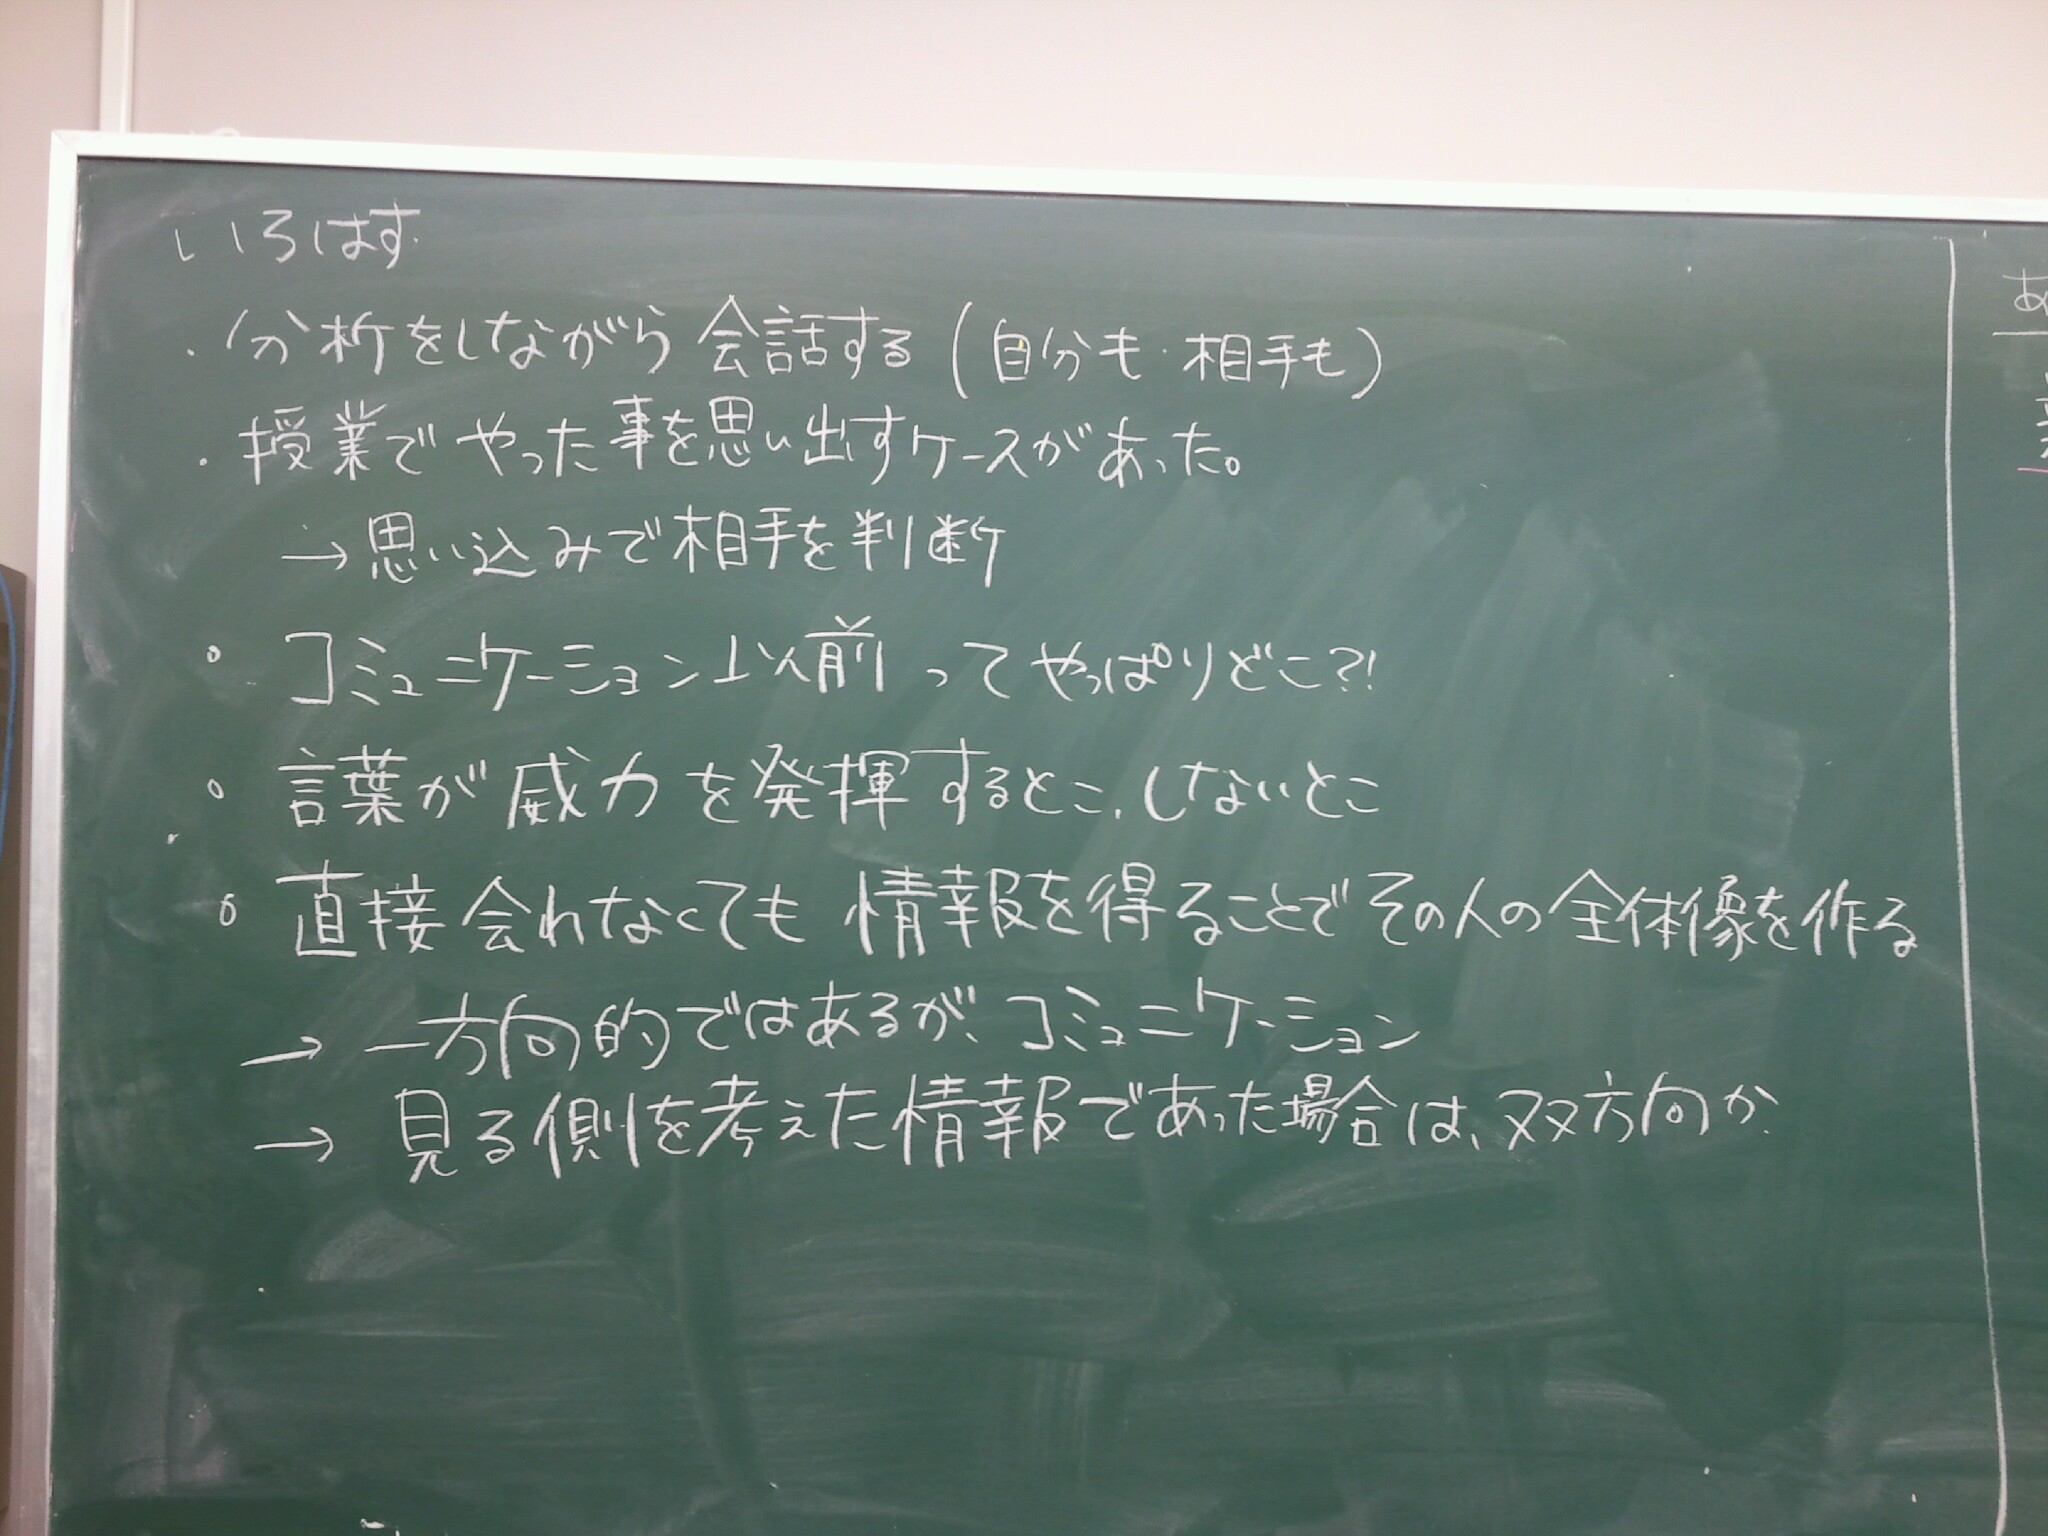 いろはす
・分析をしながら会話する(自分も・相手も)
・授業でやった事を思い出すケースがあった。
→思い込みで相手を判断
・コミュニケーション以前ってやっぱりどこ?!
・言葉が威力を発揮するとこ、しないとこ
・直接会れなくても情報を得ることでその人の全体像を作る
→一方向的ではあるが、コミュニケーション
→見る側を考えた情報であった場合は、双方向か